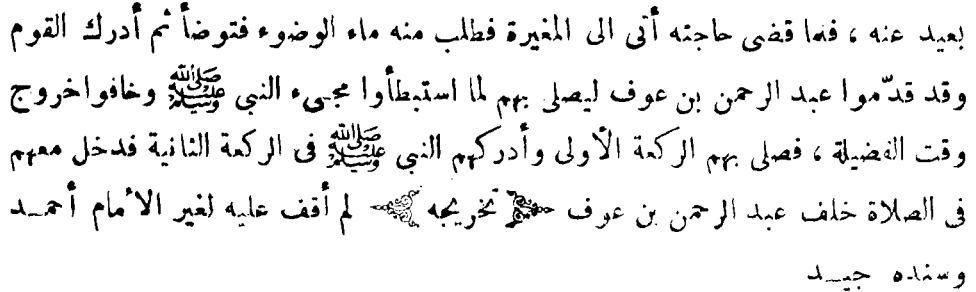 بعيد عنه ، فلما قضى حاجته أتى الى المغيرة فطلب منه ماء الوضوء فتوضأ ثم أدرك القوم
وقد قدّموا عبد الرحمن بن عوف ليصلى بهم لما استبطأوا مجىء النبى ﷺ وخافوا خروج
وقت الفضيلة ، فصلى بهم الركعة الأولى وأدركهم النبي ﷺ فى الركعة الثانية فدخل معهم
فى الصلاة خلف عبد الرحمن بن عوف ﴿ تخريجه ﴾ لم أقف عليه لغير الأمام أحمــد
وسنده جيــد